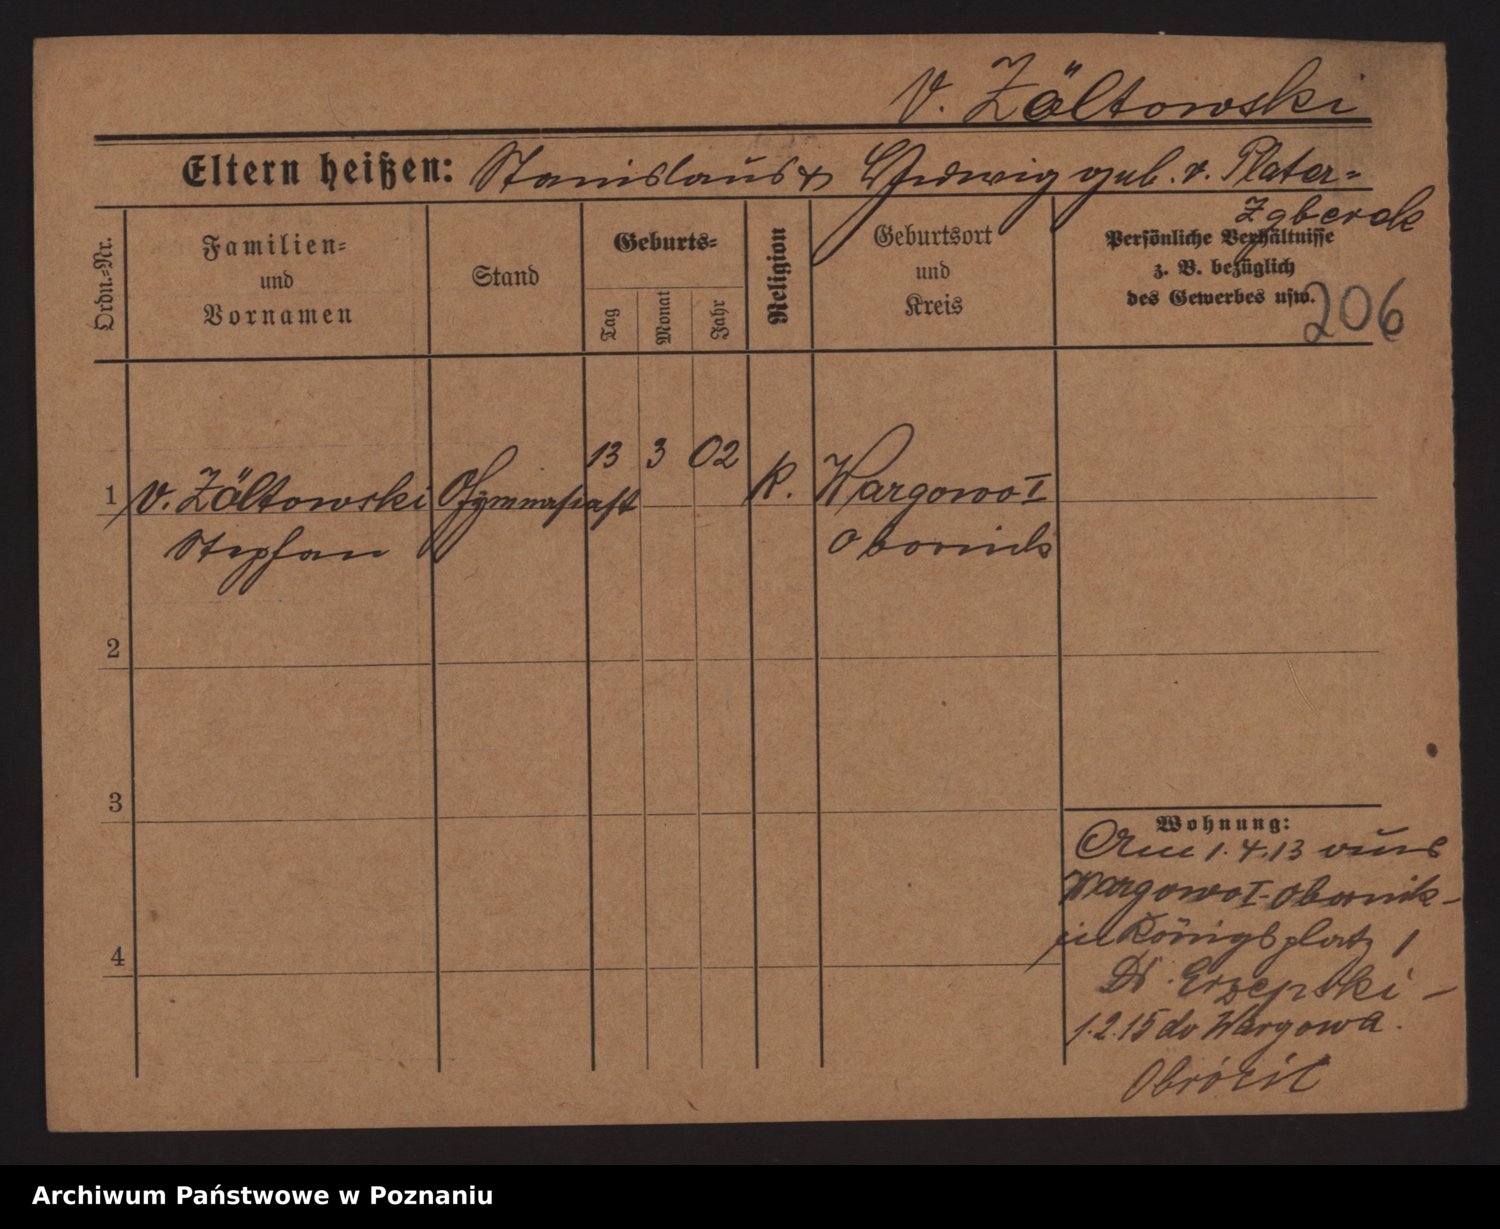 v. Zöltowski
Eltern heißen: Stanislaus & Hedwig geb. v. Plater-
Zyberck
Ordn.-Nr.
Familien-
und
Vornamen
Stand
Geburts-
Tag
Monat
Jahr
Religion
Geburtsort
und
Kreis
Persönliche Verhältnisse
z. B. bezüglich
des Gewerbes usw.
206
1
v. Zöltowski
Stephan
Gymnasiast
13 3 02
K.
Wargowo I
Obornik
2
3
4
Wohnung:
Am 1.4.13 aus
Wargowo I - Obornik -
in Königsplatz 1
Dr. Erzepski -
1.2.15 do Wargowa.
Archiwum Państwowe w Poznaniu